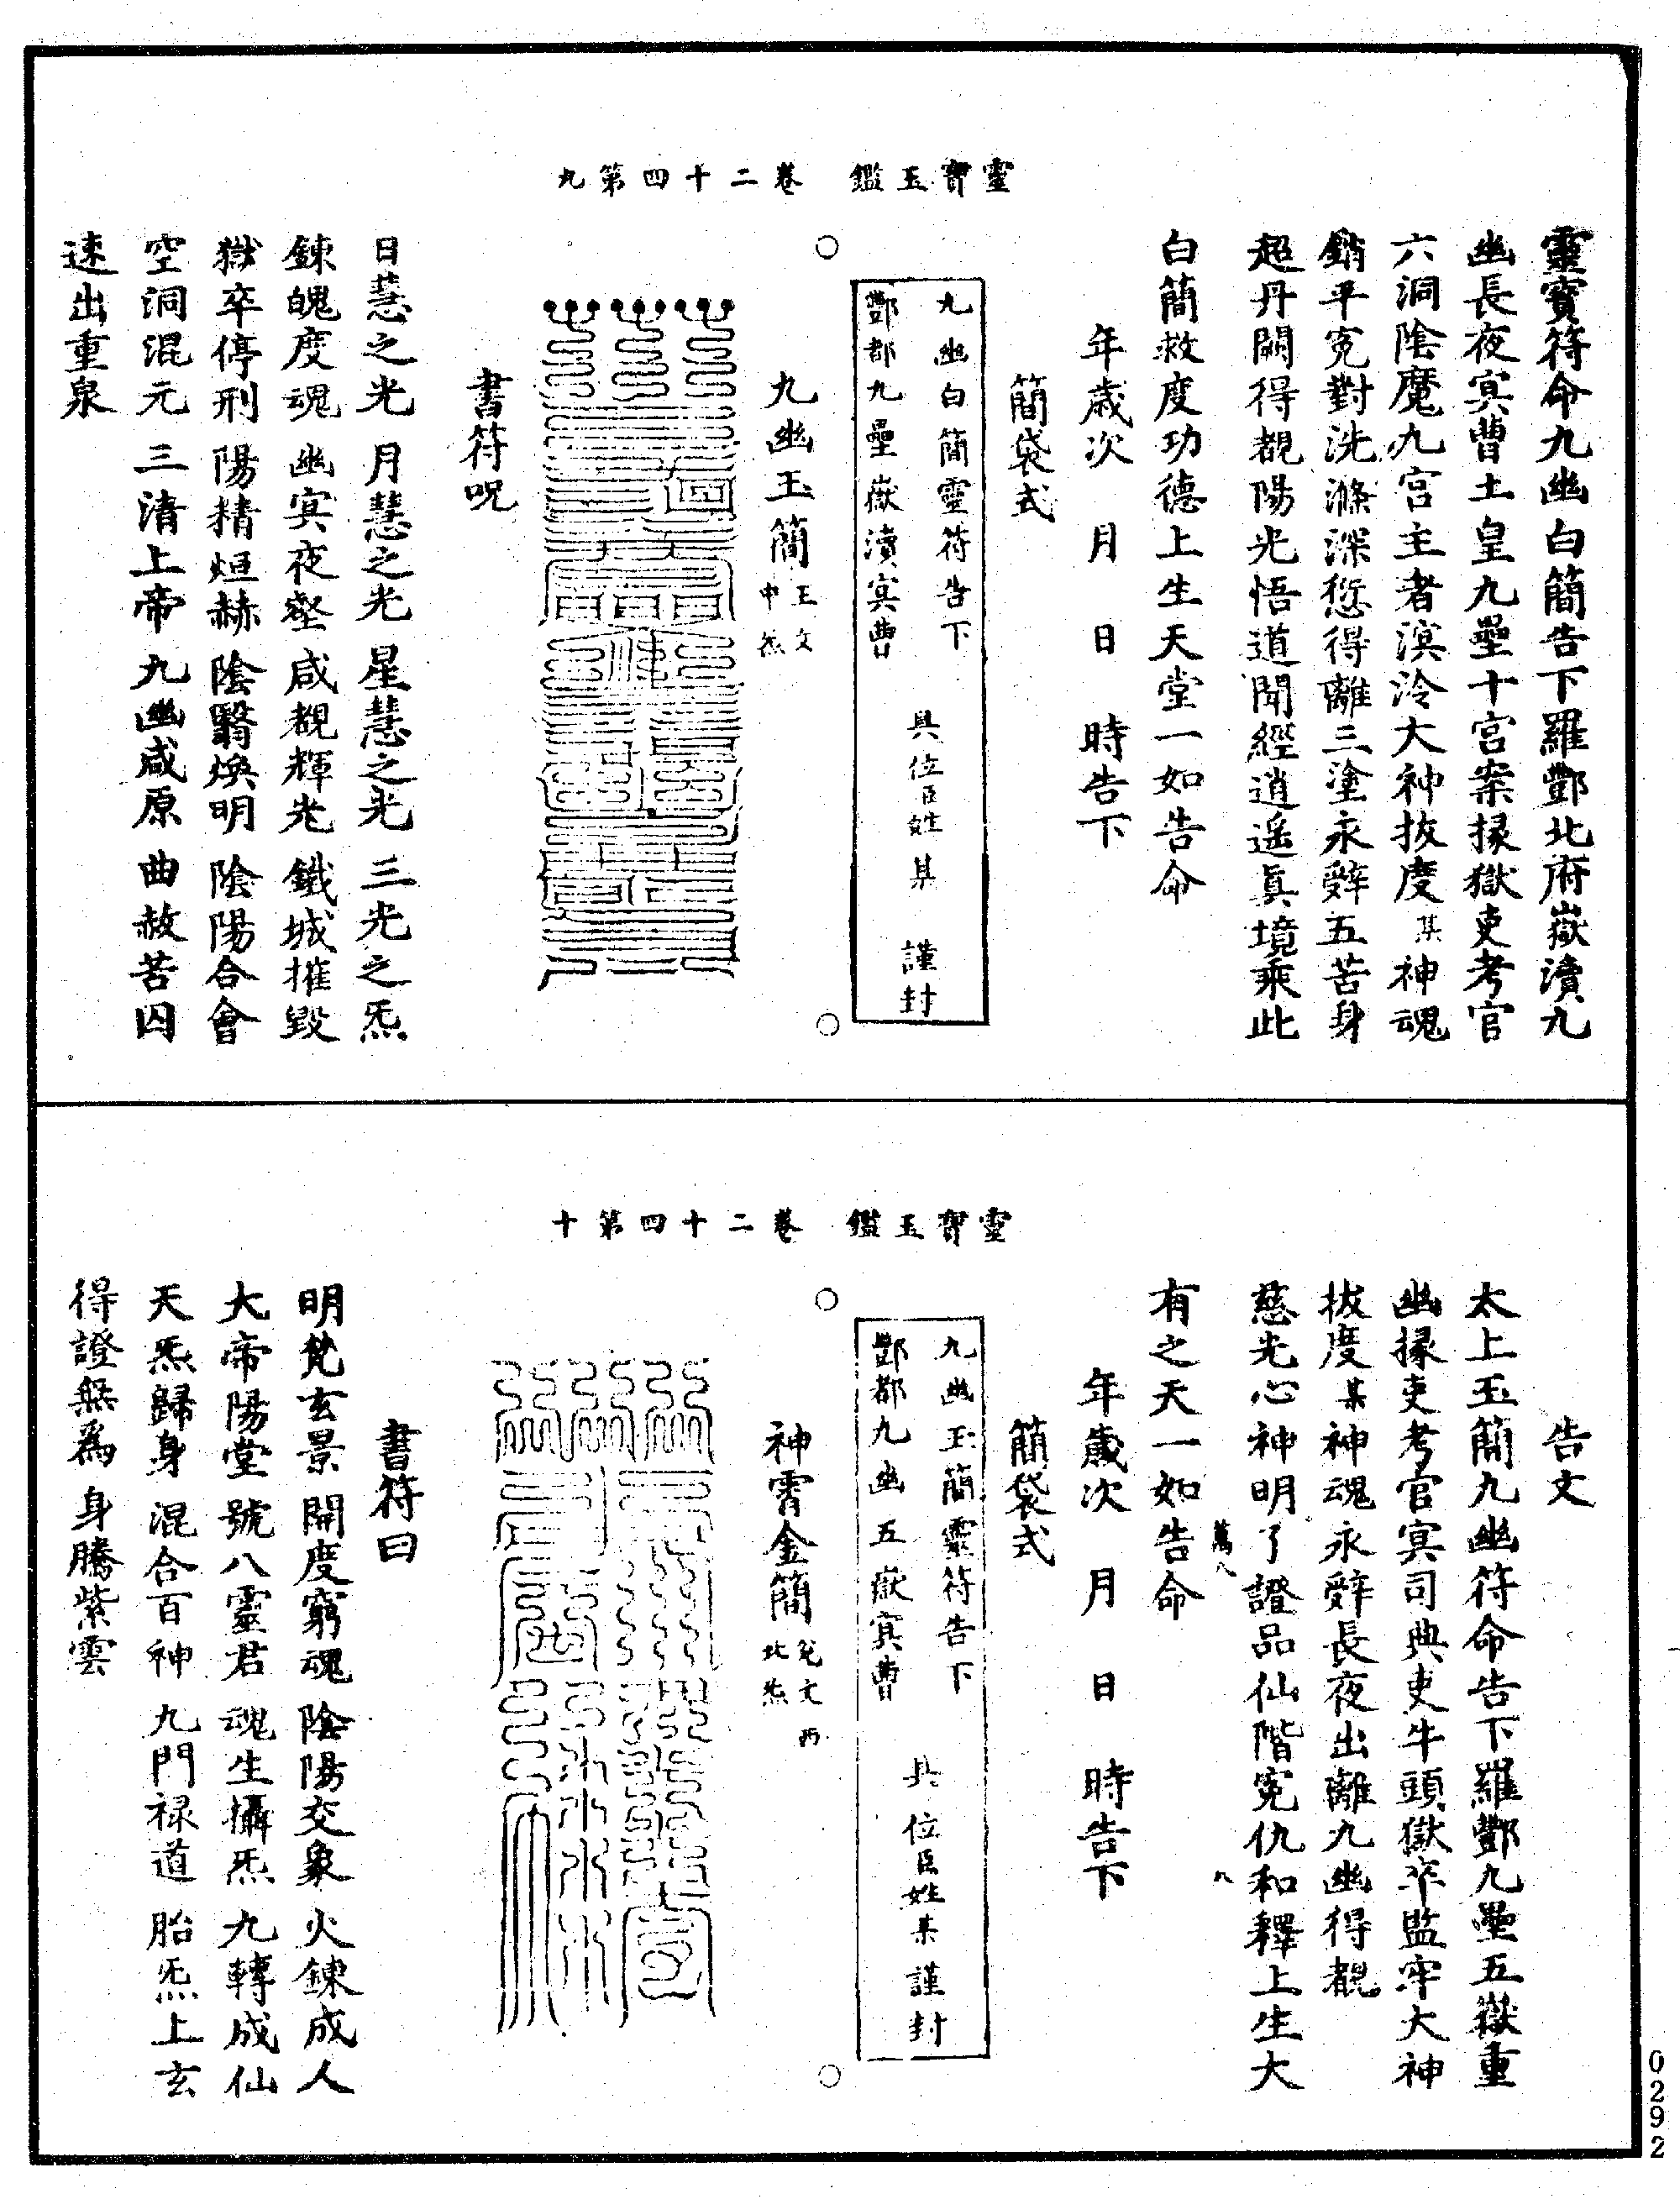 靈寶玉鑑　卷二十四第九
靈寶符命九幽白簡告下羅酆北府嶽瀆九
幽長夜冥曹土皇九壘十宮案掾獄吏考官
六洞陰魔九宮主者溟泠大神拔度某神魂
銷平冤對洗滌深愆得離三塗永辭五苦身
超丹闕得覩陽光悟道聞經逍遥真境乘此
白簡救度功德上生天堂一如告命
年歲次　月　日　時告下
簡袋式
九幽白簡靈符告下
酆都九壘嶽瀆冥曹
具位臣姓某　謹封
九幽玉簡王文中炁
書符呪
日慧之光　月慧之光　星慧之光　三光之炁
鍊魄度魂　幽冥夜壑　咸覩輝光　鐵城摧毀
獄卒停刑　陽精烜赫　陰翳煥明　陰陽合會
空洞混元　三清上帝　九幽咸原　曲赦苦囚
速出重泉
靈寶玉鑑　卷二十四第十
告文
太上玉簡九幽符命告下羅酆九壘五嶽重
幽掾吏考官冥司典吏牛頭獄卒監牢大神
拔度某神魂永辭長夜出離九幽得覩
慈光心神明了證品仙階冤仇和釋上生大
萬八　八
有之天一如告命
年歲次　月　日　時告下
簡袋式
九幽玉簡靈符告下
酆都九幽五嶽冥曹
具位臣姓某謹封
神霄金簡文西北炁
書符曰
明梵玄景　開度窮魂　陰陽交象　火鍊成人
大帝陽堂　號八靈君　魂生攝炁　九轉成仙
天炁歸身　混合百神　九門祿道　胎炁上玄
得證無為　身騰紫雲
0292